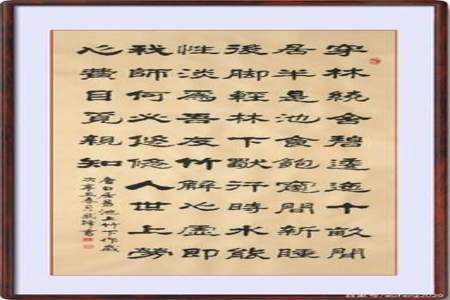 穿林繞舍碧逶迤十畝閒
居半是池食飽窗間新睡
後脚輕林下獸行時水能
性淡爲吾友竹解心虛即
我師何必悠悠人世上勞
心費目覓親知
唐白居易池上竹下作歲
次辛丑春月 書